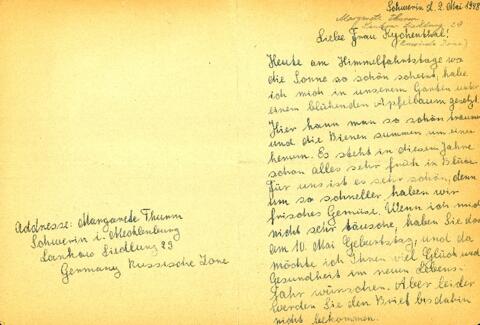 Schwerin d. 2. Mai 1948
Margarete Thumm
Lankow Siedlung 29
(Russische Zone)
Liebe Frau Kychenthal!
Heute am Himmelfahrtstage wo
die Sonne so schön scheint, habe
ich mich in unserem Garten unter
einen blühenden Apfelbaum gesetzt.
Hier kann man so schön träumen
und die Bienen summen um einen
herum. Es steht in diesem Jahre
schon alles sehr früh in Blüte.
Für uns ist es sehr schön, denn
um so schneller haben wir
frisches Gemüse. Wenn ich mich
nicht sehr täusche, haben Sie doch
am 10. Mai Geburtstag, und da
möchte ich Ihnen viel Glück und
Gesundheit im neuen Lebens-
jahr wünschen. Aber leider
werden Sie den Brief bis dahin
nicht bekommen.
Addresse: Margarete Thumm
Schwerin i. Mecklenburg
Lankow Siedlung 29
Germany Russische Zone